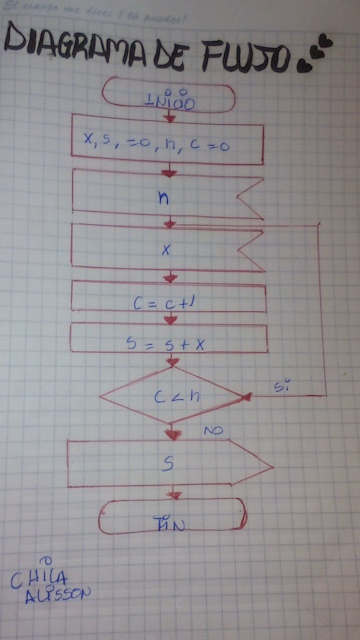 DIAGRAMA DE FLUJO
INICIO
x, s, =0, n, c=0
n
x
c= c+1
s = s+x
c<n
si
NO
s
FIN
CHILA
ALISSON